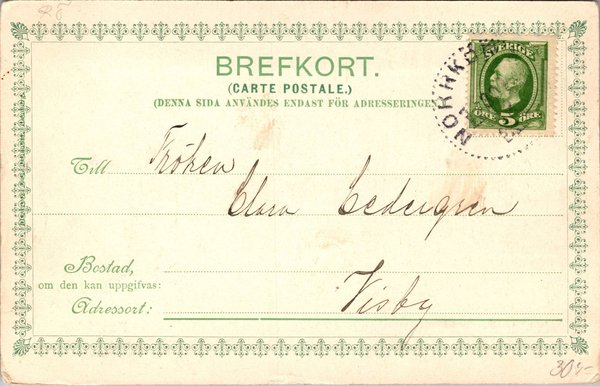 BREFKORT.
(CARTE POSTALE.)
(DENNA SIDA ANVÄNDES ENDAST FÖR ADRESSERINGEN
SVERIGE
5
ÖRE ÖRE
Till Fröken
Clara Cedergren
Bostad,
om den kan uppgifvas:
Adressort: Visby
30:-